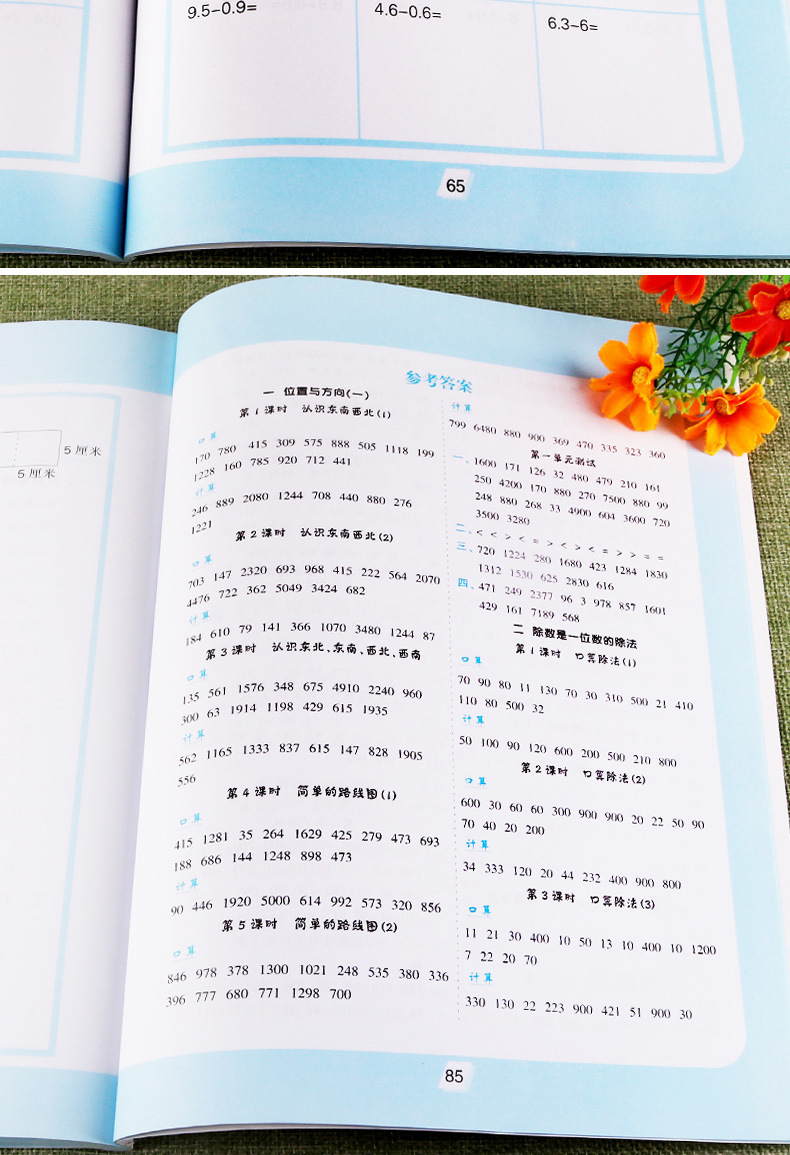 9.5-0.9=
4.6-0.6=
6.3-6=
65
5 厘米
5 厘米
参考答案
一 位置与方向(一)
第1课时 认识东南西北(1)
口算
170 780 415 309 575 888 505 1118 199
1228 160 785 920 712 441
计算
246 889 2080 1244 708 440 880 276
1221
第2课时 认识东南西北(2)
口算
703 147 2320 693 968 415 222 564 2070
4476 722 362 5049 3424 682
计算
184 610 79 141 366 1070 3480 1244 87
第3课时 认识东北、东南、西北、西南
口算
135 561 1576 348 675 4910 2240 960
300 63 1914 1198 429 615 1935
计算
562 1165 1333 837 615 147 828 1905
556
第4课时 简单的路线图(1)
口算
415 1281 35 264 1629 425 279 473 693
188 686 144 1248 898 473
计算
90 446 1920 5000 614 992 573 320 856
第5课时 简单的路线图(2)
口算
846 978 378 1300 1021 248 535 380 336
396 777 680 771 1298 700
计算
799 6480 880 900 369 470 335 323 360
第一单元测试
一、1600 171 126 32 480 479 210 161
250 4200 170 880 270 7500 880 99
248 880 268 33 4900 604 3600 720
3500 3280
二、< < > < = > < > < = > > = =
三、720 1224 280 1680 423 1284 1830
1312 1530 625 2830 616
四、471 249 2377 96 3 978 857 1601
429 161 7189 568
二 除数是一位数的除法
第1课时 口算除法(1)
口算
70 90 80 11 130 70 30 310 500 21 410
110 80 500 32
计算
50 100 90 120 600 200 500 210 800
第2课时 口算除法(2)
口算
600 30 60 60 300 900 900 20 22 50 90
70 40 20 200
计算
34 333 120 20 44 232 400 900 800
第3课时 口算除法(3)
口算
11 21 30 400 10 50 13 10 400 10 1200
7 22 20 70
计算
330 130 22 223 900 421 51 900 30
85